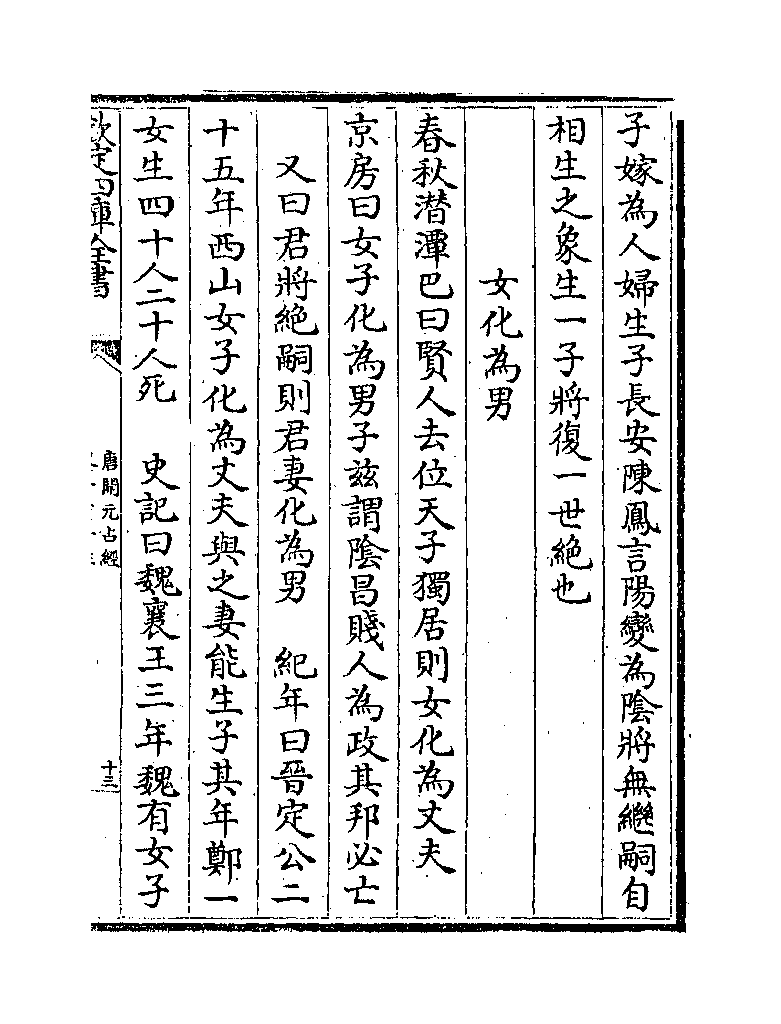 子嫁為人婦生子長安陳鳳言陽變為陰將無繼嗣自
相生之象生一子將復一世絶也
女化為男
春秋潛潭巴曰賢人去位天子獨居則女化為丈夫
京房曰女子化為男子兹謂陰昌賤人為政其邦必亡
又曰君將絶嗣則君妻化為男 紀年曰晉定公二
十五年西山女子化為丈夫與之妻能生子其年鄭一
女生四十人二十人死 史記曰魏襄王三年魏有女子
欽定四庫全書
唐開元占經
十三